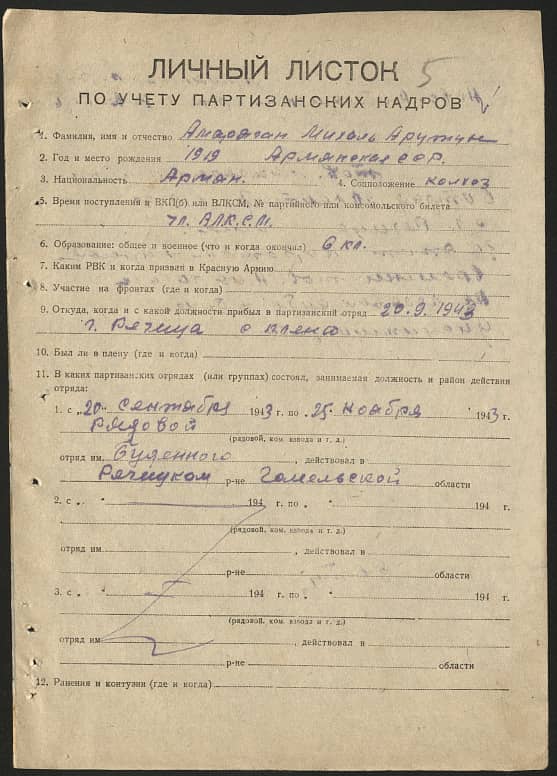 5
ЛИЧНЫЙ ЛИСТОК
ПО УЧЕТУ ПАРТИЗАНСКИХ КАДРОВ
1. Фамилия, имя и отчество Михаль
2. Год и место рождения 1919 Армянская ССР.
3. Национальность Армян. 4. Соцположение колхоз
5. Время поступления в ВКП(б) или ВЛКСМ, № партийного или комсомольского билета
чл. ЛКСМ
6. Образование: общее и военное (что и когда окончил) 6 кл.
7. Каким РВК и когда призван в Красную Армию
8. Участие на фронтах (где и когда)
9. Откуда, когда и с какой должности прибыл в партизанский отряд 20.9.1943
г. Речица с плена
10. Был ли в плену (где и когда)
11. В каких партизанских отрядах (или группах) состоял, занимаемая должность и район действия
отряда:
1. с „20“ сентября 1943 г. по „25“ ноября 1943 г.
Рядовой
(рядовой, ком. взвода и т. д.)
отряд им. Буденного, действовал в
Речицком р-не Гомельской области
2. с „ “ 194 г. по „ “ 194 г.
(рядовой, ком. взвода и т. д.)
отряд им. , действовал в
р-не области
3. с „ “ 194 г. по „ “ 194 г.
(рядовой, ком. взвода и т. д.)
отряд им. , действовал в
р-не области
12. Ранения и контузии (где и когда)